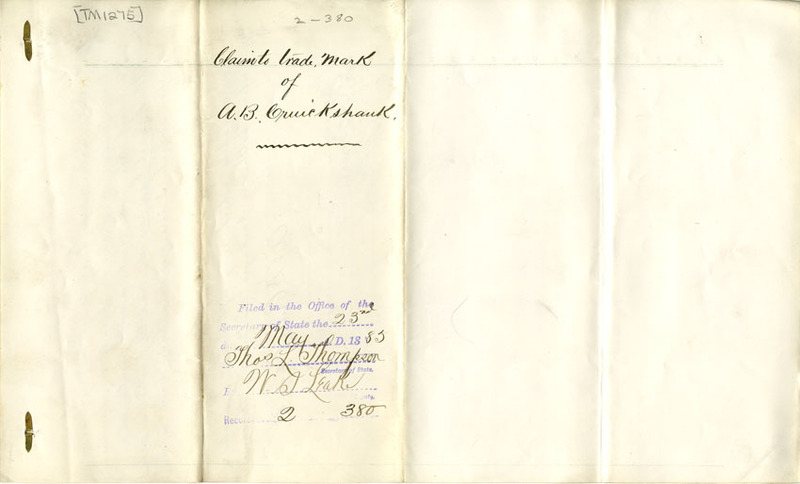 [TM1275]
2-380
Claim to trade, Mark
of
A.B. Cruickshank.
Filed in the Office of the
Secretary of State the 23rd
May A.D. 1883
Thos L. Thompson
Secretary of State.
W. T. Leake
Record 2 380